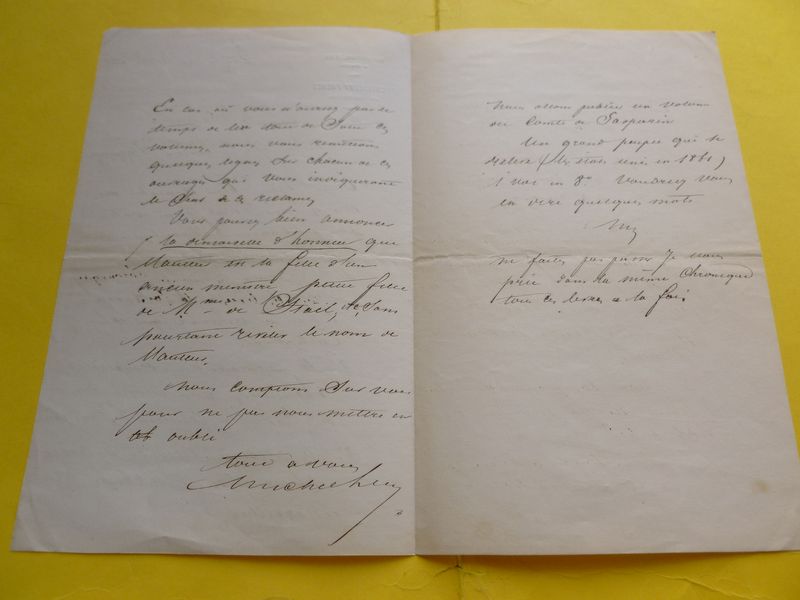 En cas où vous n'auriez pas le
temps de lire tous de suite ces
volumes, nous vous
quelques lignes sur chacun de ces
ouvrages qui vous indiqueront
le
Vous pouvez bien annoncer
la demoiselle d'honneur que
l'auteur est la fille d'un
ancien ministre petite fille
de Mme de Staël, etc, sans
pourtant révéler le nom de
l'auteur.
Nous comptons sur vous
pour ne pas nous mettre en
oubli
tout à vous
Michel Levy
Nous avons publié un volume
du Comte de Gasparin
Un grand peuple qui se
relève (les états unis en 1861)
1 vol in 8o Voudriez vous
en dire quelques mots
ne faites pas passer Je vous
prie dans la même Chronique
tous ces livres à la fois